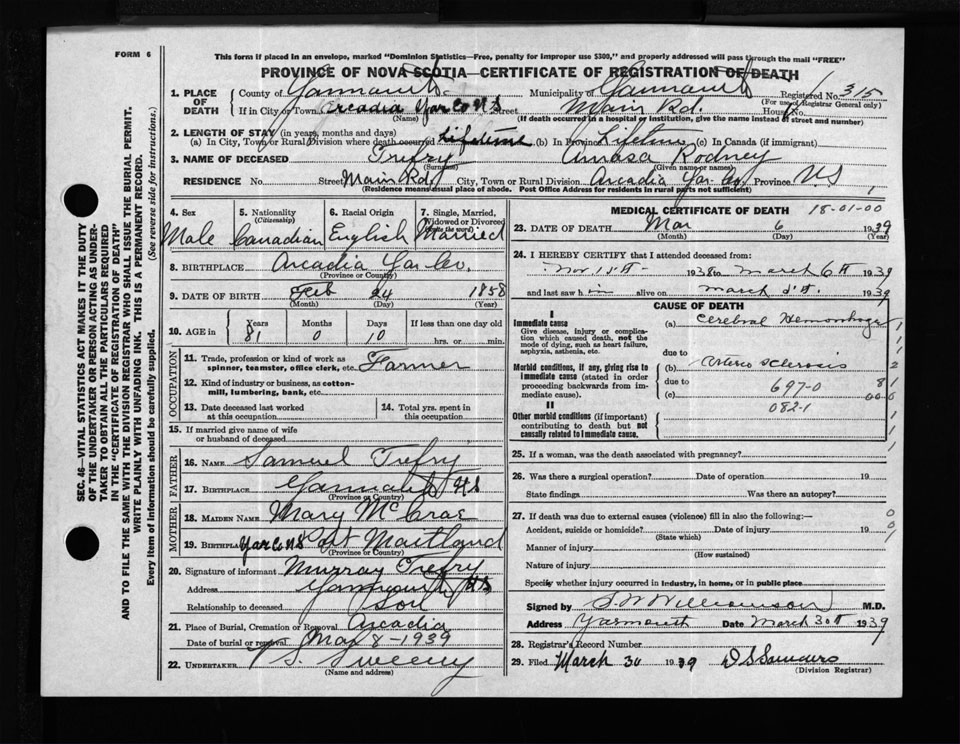 FORM 6
This form if placed in an envelope, marked "Dominion Statistics—Free, penalty for improper use $300," and properly addressed will pass through the mail "FREE"
PROVINCE OF NOVA SCOTIA—CERTIFICATE OF REGISTRATION OF DEATH
1. PLACE OF DEATH
County of Yarmouth Municipality of Yarmouth Registered No. 315
(For use of Registrar General only)
If in City or Town, Arcadia Yar Co NS Street Main Rd. House No.
(Name) (If death occurred in a hospital or institution, give the name instead of street and number)
2. LENGTH OF STAY (in years, months and days)
(a) In City, Town or Rural Division where death occurred Lifetime (b) In Province Lifetime (c) In Canada (if immigrant)
3. NAME OF DECEASED Trefry Amasa Rodney
(Surname) (Given name or names)
RESIDENCE No. Street Main Rd City, Town or Rural Division Arcadia Yar Co Province N.S
(Residence means usual place of abode. Post Office Address for residents in rural parts not sufficient)
4. Sex
Male
5. Nationality
(Citizenship)
Canadian
6. Racial Origin
English
7. Single, Married, Widowed or Divorced
(write the word)
Married
8. BIRTHPLACE Arcadia Yar Co.
(Province or Country)
9. DATE OF BIRTH Feb 24 1858
(Month) (Day) (Year)
10. AGE in
Years Months Days If less than one day old
81 0 10 hrs. or min.
OCCUPATION
11. Trade, profession or kind of work as spinner, teamster, office clerk, etc. Farmer
12. Kind of industry or business, as cotton-mill, lumbering, bank, etc.
13. Date deceased last worked at this occupation
14. Total yrs. spent in this occupation
15. If married give name of wife or husband of deceased
FATHER
16. NAME Samuel Trefry
17. BIRTHPLACE Yarmouth NS
(Province or Country)
MOTHER
18. MAIDEN NAME Mary McCrae
19. BIRTHPLACE Yar Co NS Port Maitland
(Province or Country)
20. Signature of informant Murray Trefry
Address Yarmouth NS
Relationship to deceased Son
21. Place of Burial, Cremation or Removal Arcadia
Date of burial or removal Mar 8 - 1939
22. UNDERTAKER Sweeny
(Name and address)
MEDICAL CERTIFICATE OF DEATH 18-01-00
23. DATE OF DEATH Mar 6 1939
(Month) (Day) (Year)
24. I HEREBY CERTIFY that I attended deceased from:
Nov 1938 to March 6th 1939
and last saw him alive on March 1939
CAUSE OF DEATH
I
Immediate cause
Give disease, injury or complication which caused death, not the mode of dying, such as heart failure, asphyxia, asthenia, etc.
(a) Cerebral Hemorrhage
due to
Morbid conditions, if any, giving rise to immediate cause (stated in order proceeding backwards from immediate cause)
(b) Arterio sclerosis
due to 697-0
(c)
082-1
II
Other morbid conditions (if important) contributing to death but not causally related to immediate cause.
25. If a woman, was the death associated with pregnancy?
26. Was there a surgical operation? Date of operation 19
State findings Was there an autopsy?
27. If death was due to external causes (violence) fill in also the following:—
Accident, suicide or homicide? Date of injury 19
(State which)
Manner of injury
(How sustained)
Nature of injury
Specify whether injury occurred in industry, in home, or in public place
Signed by S W Williamson M.D.
Address Yarmouth Date March 30th 1939
28. Registrar's Record Number
29. Filed March 30 1939 D S Saunders
(Division Registrar)
SEC. 46—VITAL STATISTICS ACT MAKES IT THE DUTY
OF THE UNDERTAKER OR PERSON ACTING AS UNDER-
TAKER TO OBTAIN ALL THE PARTICULARS REQUIRED
IN THE "CERTIFICATE OF REGISTRATION OF DEATH"
AND TO FILE THE SAME WITH THE DIVISION REGISTRAR WHO SHALL ISSUE THE BURIAL PERMIT.
WRITE PLAINLY WITH UNFADING INK. THIS IS A PERMANENT RECORD.
Every item of information should be carefully supplied. (See reverse side for instructions.)